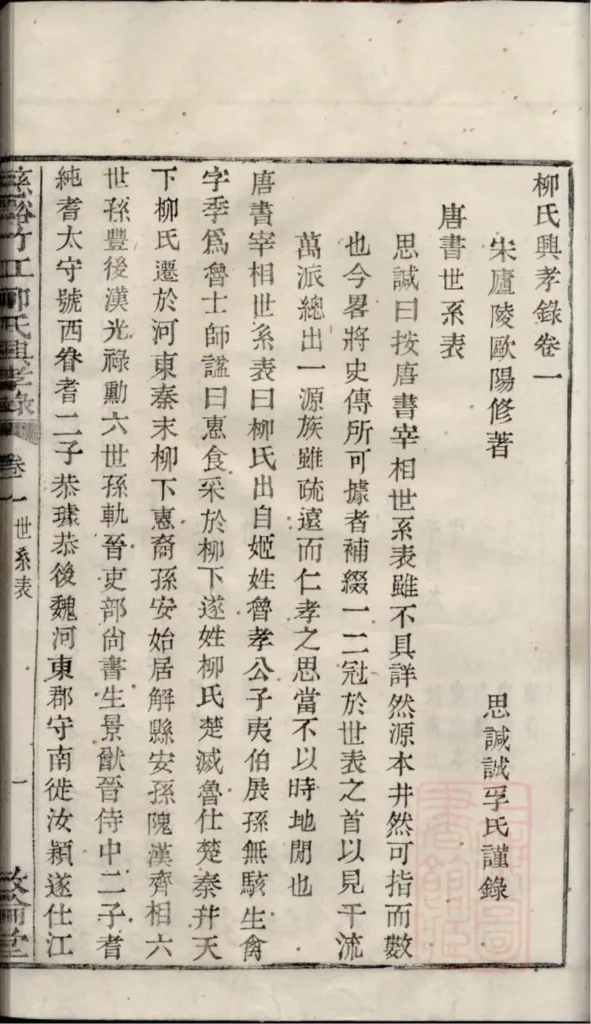 柳氏興孝錄卷一
宋廬陵歐陽修著　思誠誠孚氏謹錄
唐書世系表
思誠曰按唐書宰相世系表雖不具詳然源本井然可指而數
也今畧將史傳所可據者補綴一二冠於世表之首以見千流
萬派總出一源族雖疏遠而仁孝之思當不以時地閒也
唐書宰相世系表曰柳氏出自姬姓魯孝公子夷伯展孫無駭生禽
字季爲魯士師諡曰惠食采於柳下遂姓柳氏楚滅魯仕楚秦幷天
下柳氏遷於河東秦末柳下惠裔孫安始居解縣安孫隗漢齊相六
世孫豐後漢光祿勳六世孫軌晉吏部尙書生景猷晉侍中二子耆
純耆太守號西眷耆二子恭璩恭後魏河東郡守南徙汝潁遂仕江
慈谿竹江柳氏興孝錄　卷一　世系表　一　敦倫堂